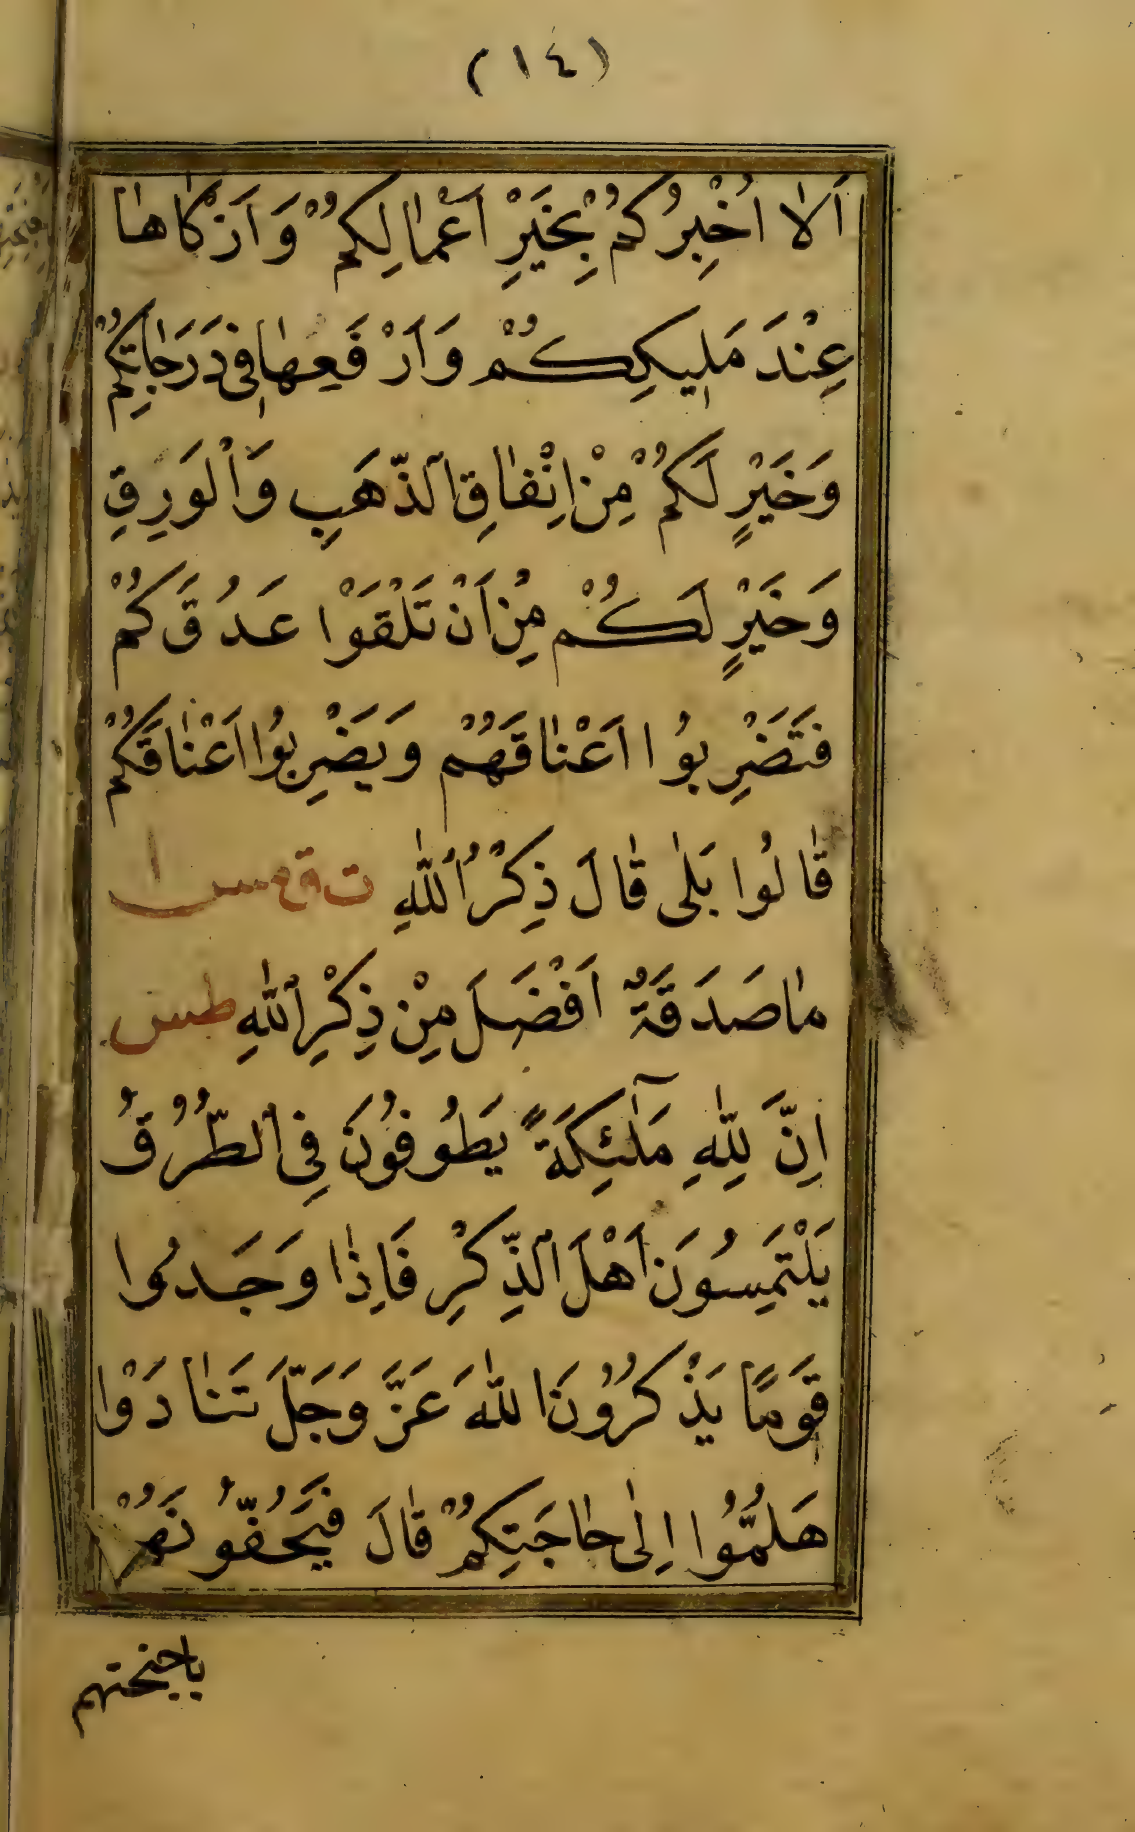 (١٤)
اَلٰا اُخْبِرُكُمْ بِخَيْرِ اَعْمٰالِكُمْ وَاَزْكٰاهٰا
عِنْدَ مَلِيكِكُمْ وَاَرْفَعِهٰا فِى دَرَجٰاتِكُمْ
وَخَيْرٍ لَكُمْ مِنْ اِنْفٰاقِ الذَّهَبِ وَالْوَرِقِ
وَخَيْرٍ لَكُمْ مِنْ اَنْ تَلْقَوْا عَدُوَّكُمْ
فَتَضْرِبُوا اَعْنٰاقَهُمْ وَيَضْرِبُوا اَعْنٰاقَكُمْ
قٰالُوا بَلٰى قٰالَ ذِكْرُ اللّٰهِ ت ق مس ا
مٰا صَدَقَةٌ اَفْضَلَ مِنْ ذِكْرِ اللّٰهِ طس
اِنَّ لِلّٰهِ مَلٰٓئِكَةً يَطُوفُونَ فِى الطُّرُقُ
يَلْتَمِسُونَ اَهْلَ الذِّكْرِ فَاِذٰا وَجَدُوا
قَوْمًا يَذْكُرُونَ اللّٰهَ عَزَّ وَجَلَّ تَنٰادَوْا
هَلُمُّوا اِلٰى حٰاجَتِكُمْ قٰالَ فَيَحُفُّونَهُمْ
باجنحتهم